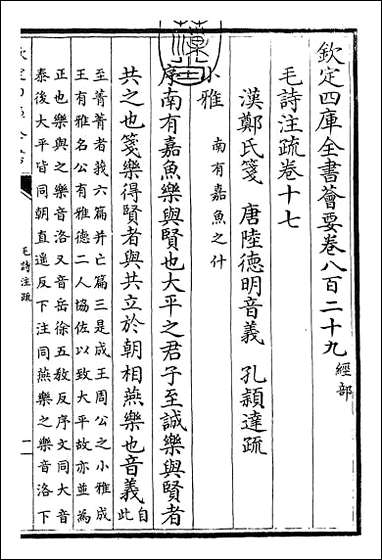 欽定四庫全書薈要卷八百二十九 經部
毛詩注疏卷十七
漢鄭氏箋 唐陸德明音義 孔頴達疏
小雅 南有嘉魚之什
序南有嘉魚樂與賢也大平之君子至誠樂與賢者
共之也箋樂得賢者與共立於朝相燕樂也音義自此
至菁菁者莪六篇并亡篇三是成王周公之小雅成
王有雅名公有雅德二人協佐以致大平故亦並為
正也樂與之樂音洛又音岳徐五敎反序文同大音
泰後大平皆同朝直遥反下注同燕樂之樂音洛下
毛詩注疏
一